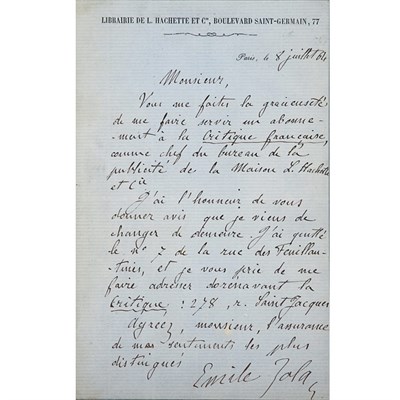 LIBRAIRIE DE L. HACHETTE ET Cie, BOULEVARD SAINT-GERMAIN, 77
Paris, le 8 juillet 64
Monsieur,
Vous me faites la gracieuseté
de me faire servir un abonne-
-ment à la Critique française,
comme chef du bureau de la
publicité de la Maison L. Hachette
et Cie
J'ai l'honneur de vous
donner avis que je viens de
changer de demeure. J'ai quitté
le no 7 de la rue des Feuillan-
-tines, et je vous prie de me
faire adresser dorénavant la
Critique : 278, r. Saint Jacques
Agréez, monsieur, l'assurance
de mes sentiments les plus
distingués
Emile Zola